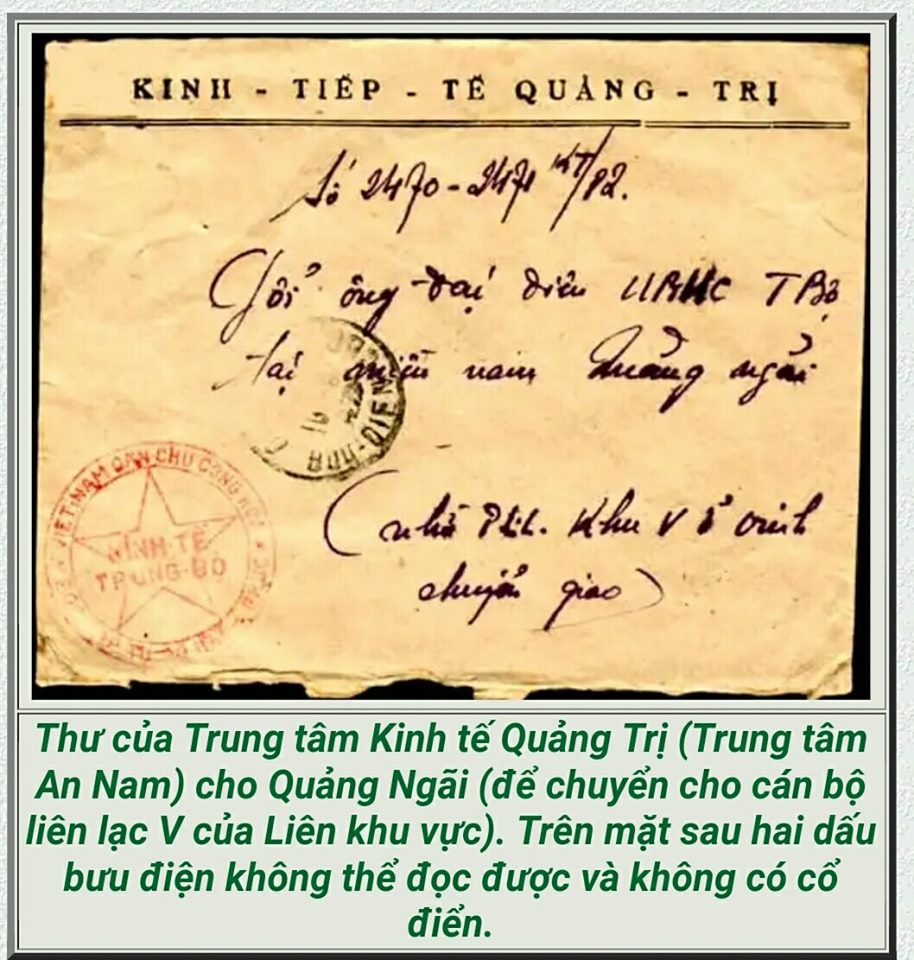 KINH - TIẾP - TẾ QUẢNG - TRỊ
Số 2470-2471 KT/P2.
Gởi ông Đại diện UBHC TBộ
tại miền nam Quảng ngãi
BUU-DIEN
VIET-NAM DAN CHU CONG HOA
KINH TẾ
TRUNG-BỘ
(nhờ Khu V ở
chuyển giao)
Thư của Trung tâm Kinh tế Quảng Trị (Trung tâm
An Nam) cho Quảng Ngãi (để chuyển cho cán bộ
liên lạc V của Liên khu vực). Trên mặt sau hai dấu
bưu điện không thể đọc được và không có cổ
điển.